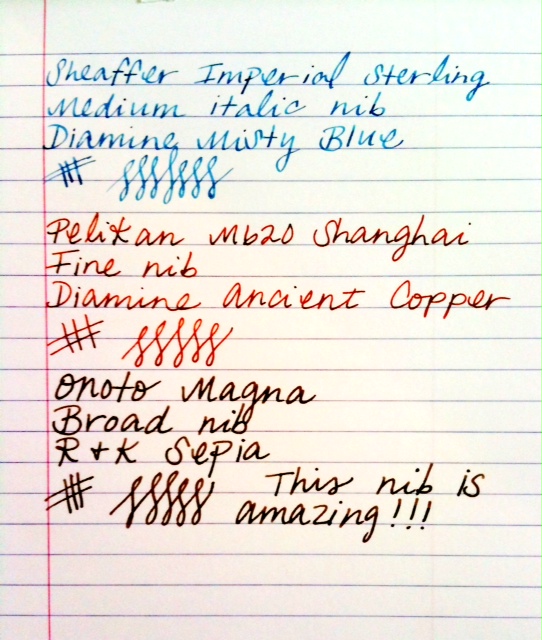 Sheaffer Imperial Sterling
Medium italic nib
Diamine Misty Blue
Pelikan M620 Shanghai
Fine nib
Diamine Ancient Copper
Onoto Magna
Broad nib
R + K Sepia
This nib is
amazing!!!